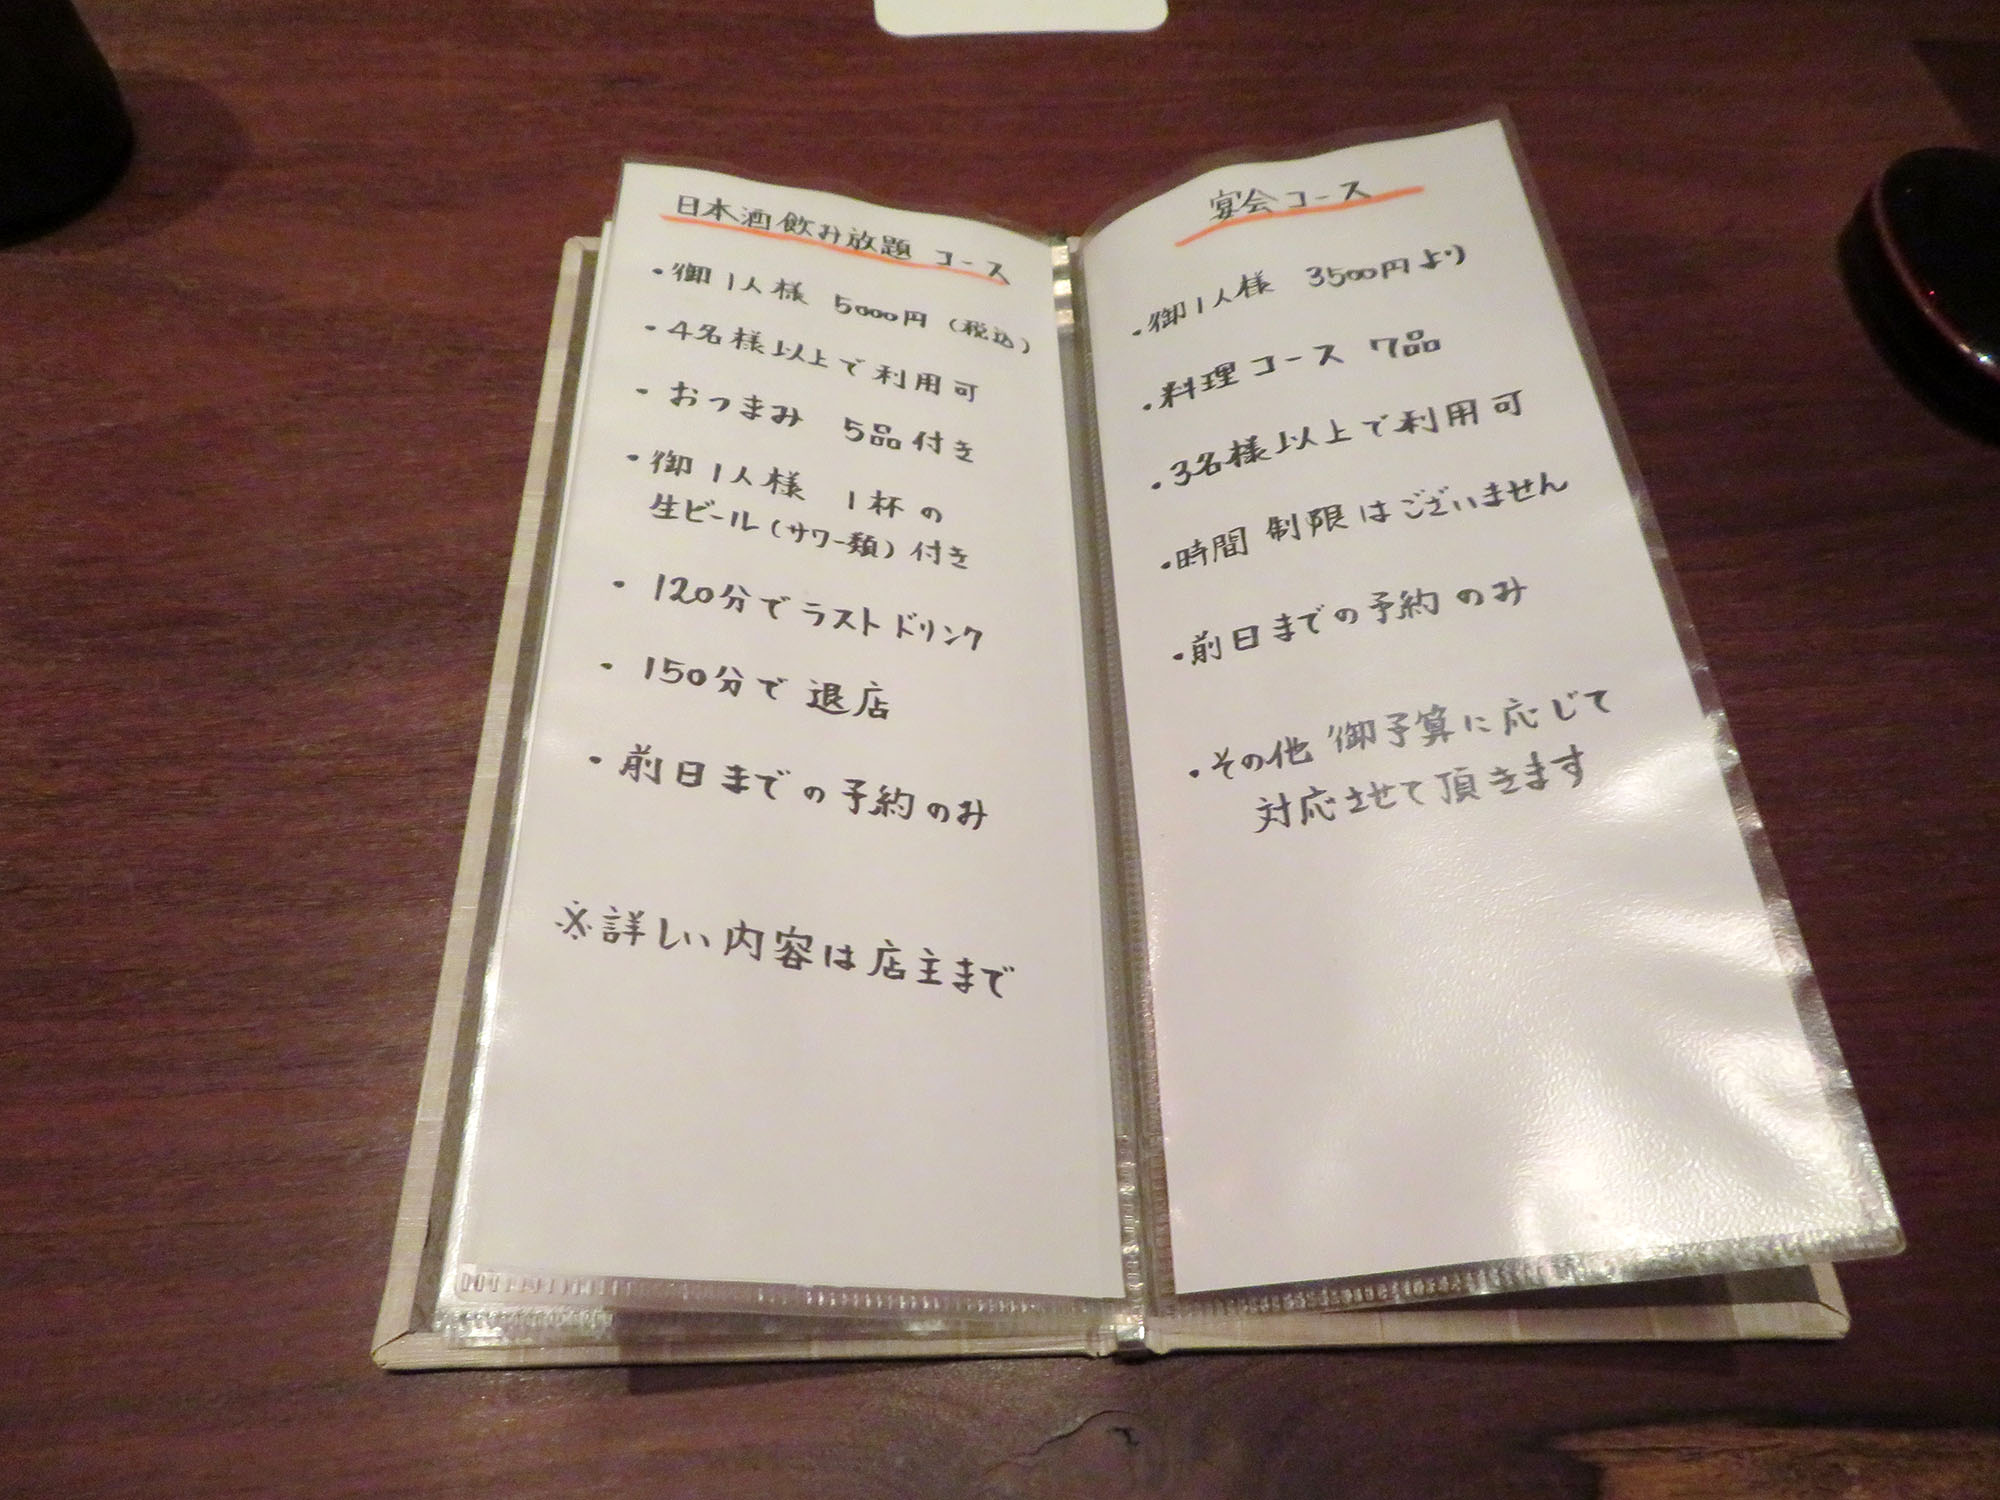 日本酒飲み放題 コース
・御1人様 5000円(税込)
・4名様以上で利用可
・おつまみ 5品付き
・御1人様 1杯の
生ビール(サワー類)付き
・120分でラストドリンク
・150分で退店
・前日までの予約のみ
※詳しい内容は店主まで
宴会コース
・御1人様 3500円より
・料理コース 7品
・3名様以上で利用可
・時間制限はございません
・前日までの予約のみ
・その他 御予算に応じて
対応させて頂きます